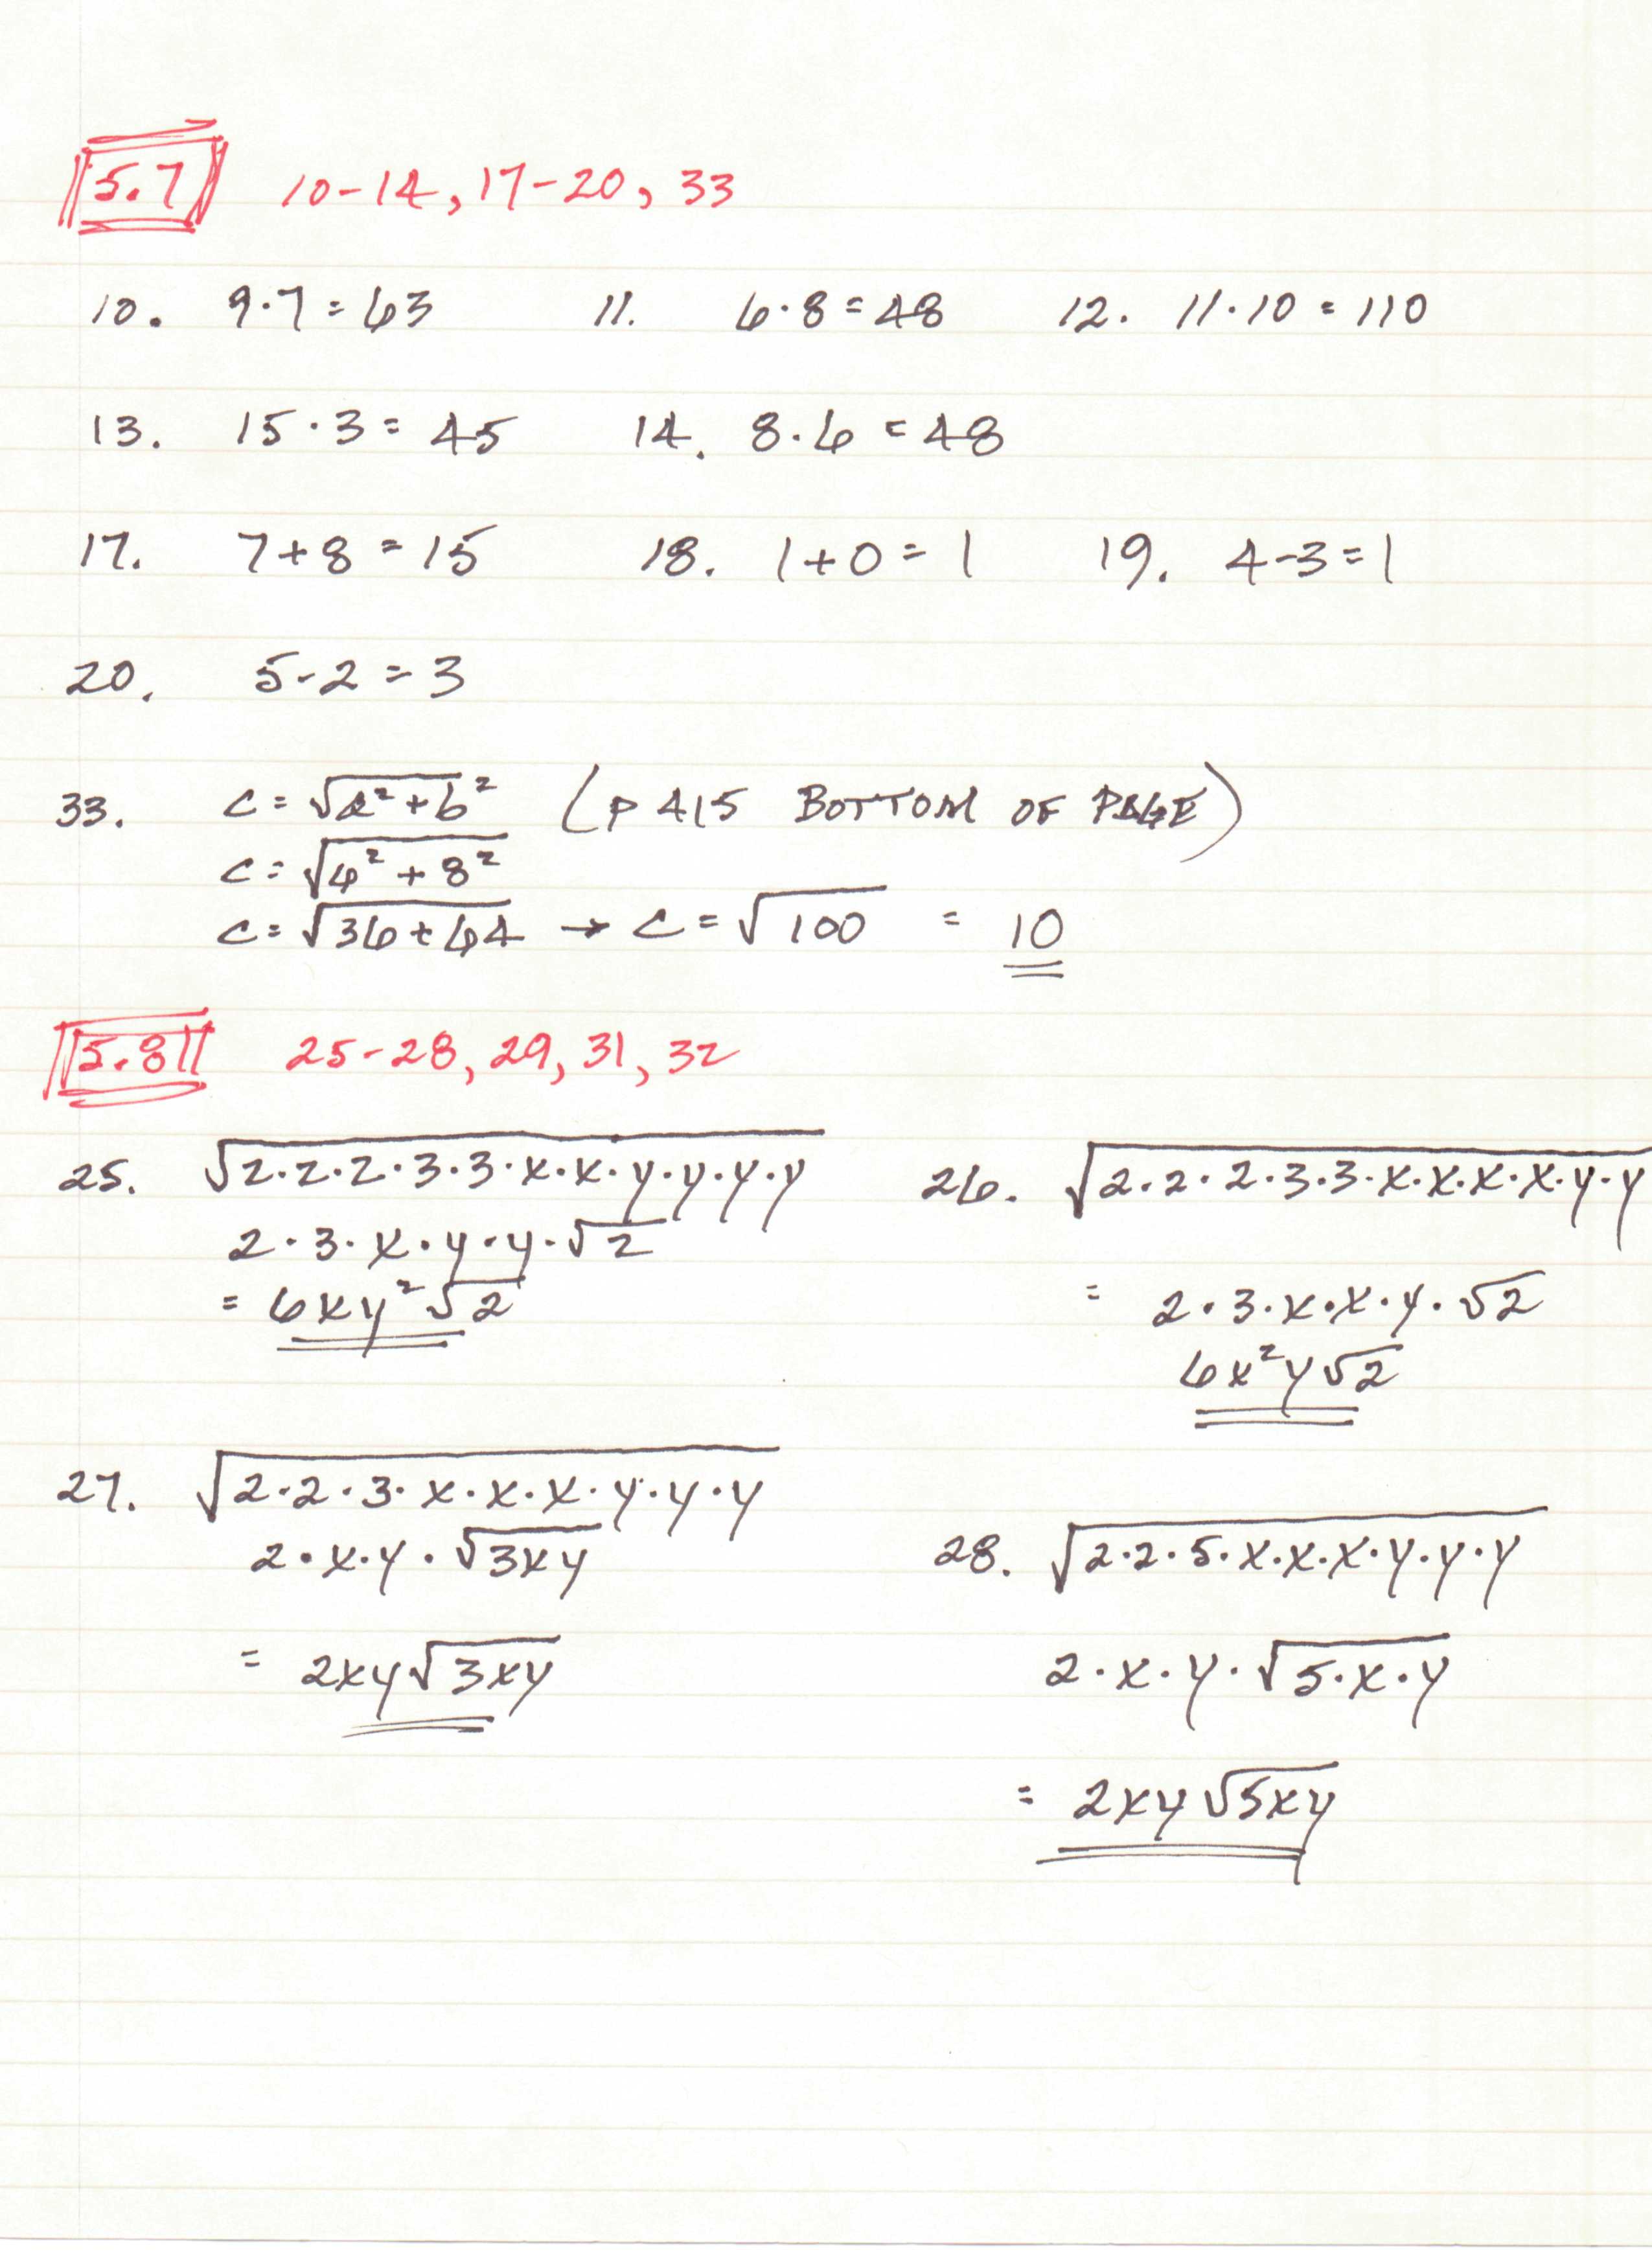 5.7 10-14, 17-20, 33
10. 9·7 = 63 11. 6·8 = 48 12. 11·10 = 110
13. 15·3 = 45 14. 8·6 = 48
17. 7+8 = 15 18. 1+0 = 1 19. 4-3 = 1
20. 5-2 = 3
33. c = √a²+b² (P 415 BOTTOM OF PAGE)
c = √6² + 8²
c = √36+64 → c = √100 = 10
5.8 25-28, 29, 31, 32
25. √2·2·2·3·3·x·x·y·y·y·y 26. √2·2·2·3·3·x·x·x·x·y·y
2·3·x·y·y·√2
= 6xy²√2 = 2·3·x·x·y·√2
6x²y√2
27. √2·2·3·x·x·x·y·y·y
2·x·y·√3xy 28. √2·2·5·x·x·x·y·y·y
= 2xy√3xy 2·x·y·√5·x·y
= 2xy√5xy